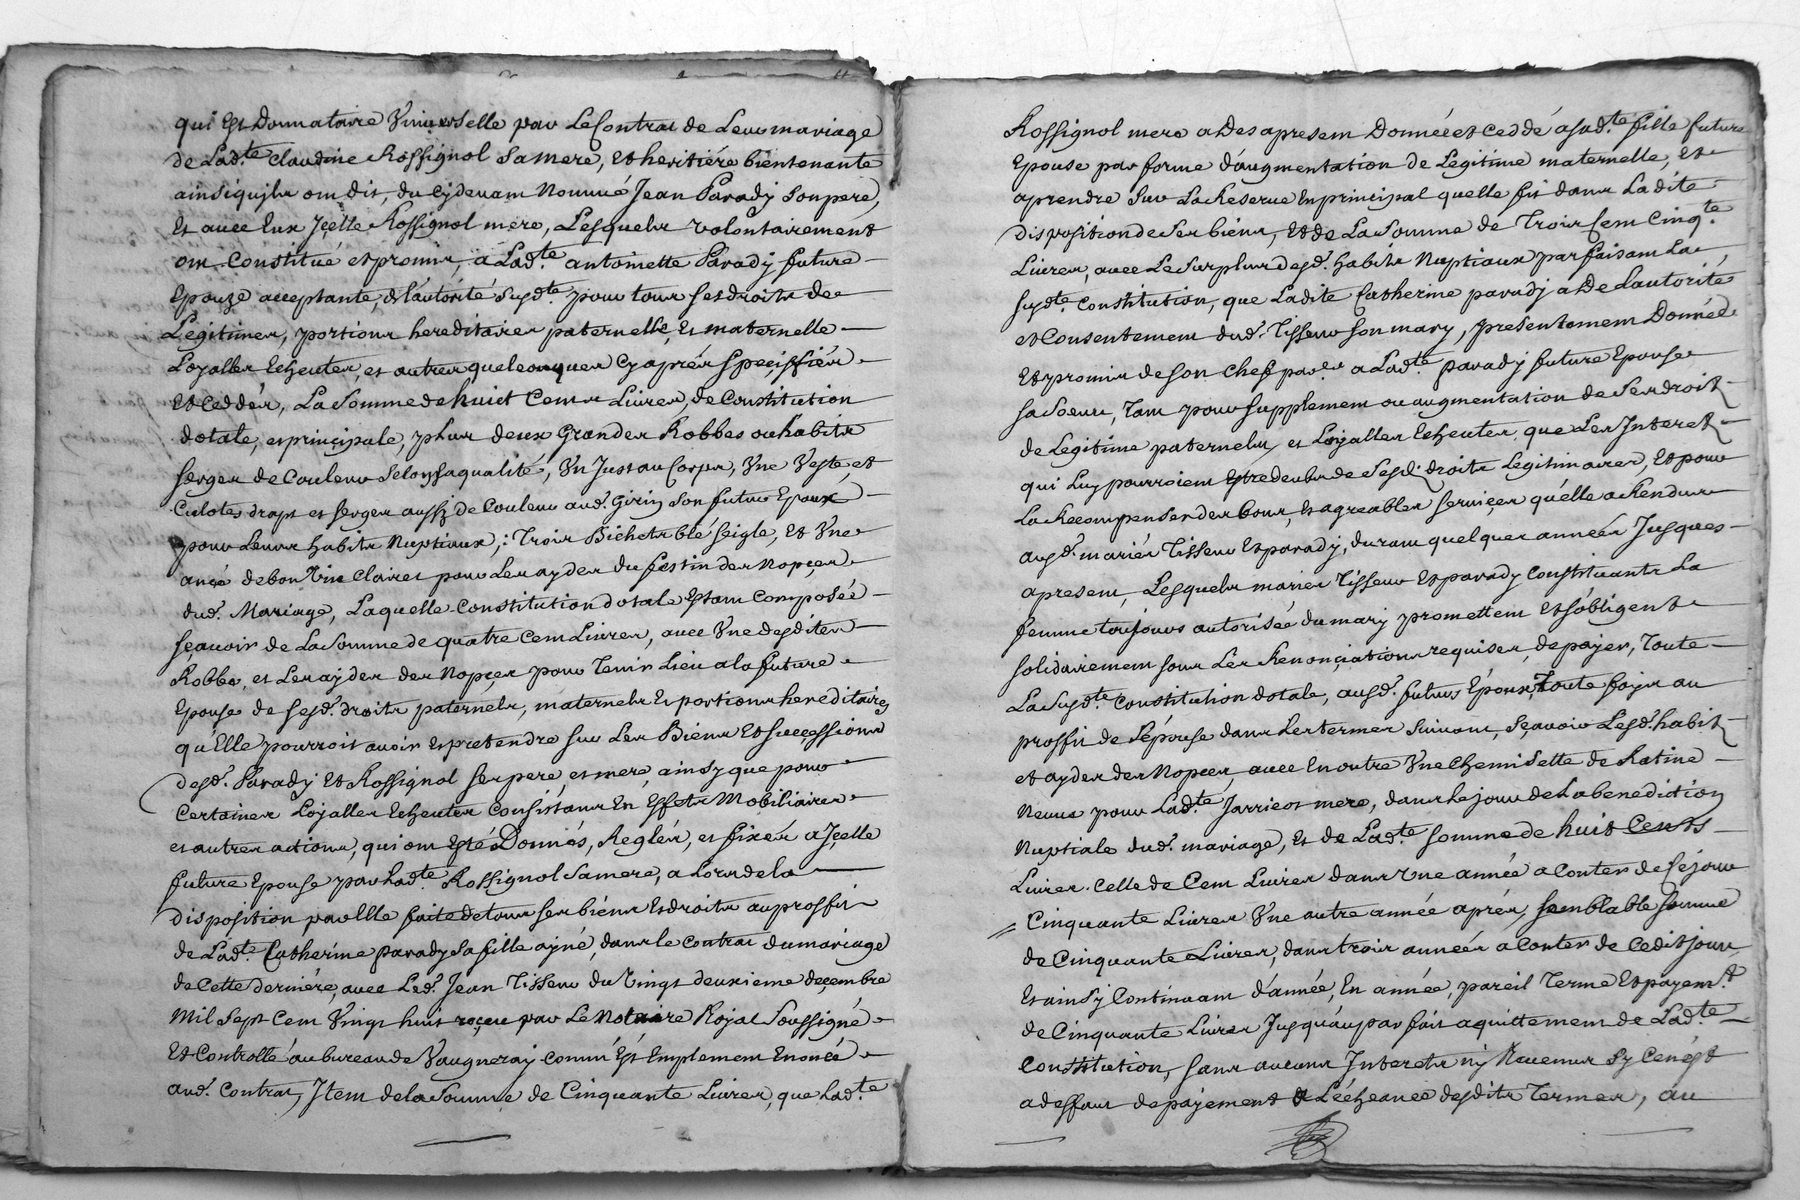 qui Est Donnataire Universelle par Le Contrat de Leur mariage
de Lad.te Claudine Rossignol Sa mere, Et heritiére bientenante
ainsi quils ont dit, du Cydevant Nommé Jean Parady Son pere,
Et avec Eux Jcelle Rossignol mere, Lesquels volontairement
ont Constitué et promis, a Lad.te antoinette Parady future
Epouze acceptante, de l'autorité Susd.te pour tous ses droits de
Legitimes, portions hereditaires paternelle, et maternelle
Loyalles Echeutes, et autres quelconques Cy aprés Specifiés
Et Ceddés, La Somme de huict Cents Livres, de Constitution
dotale, et principale, plus deux Grandes Robbes ou habits
Serges de Couleur Selon Sa qualité, Un Just au Corps, Une Veste, et
Culotes draps et Serges aussy de Couleur aud. Girin Son futur Epoux
pour Leurs habits Nuptiaux, Trois Bichets blé Seigle, Et Une
anée de bon Vin Clairet pour Les ayder du festin des Nopces
dud. Mariage, Laquelle Constitution dotale Estant Composée
Sçavoir de La Somme de quatre Cent Livres, avec Une desdites
Robbe, et Les ayder des Nopces pour Tenir Lieu a la future
Epouse de Sesd. droits paternels, maternels Et portions hereditaires
qu'Elle pourroit avoir et pretendre sur Les Biens Et Successions
desd. Parady Et Rossignol Ses pere, et mere, ainsy que pour
Certaines Loyalles Echeutes Consistants En Effets Mobiliaires
et autres actions, qui ont Esté Donnés, Reglés, et fixés a Jcelle
future Epouse par Lad.te Rossignol Sa mere, a Lors de la
disposition par Elle faite de tous Ses biens Et droits au proffit
de Lad.te Catherine parady Sa fille ayné, dans le Contrat du mariage
de Cette derniére, avec Led. Jean Tisseur du Vingt deuxieme decembre
Mil Sept Cent Vingt huit reçeu par Le Notaire Royal Soussigné
Et Controllé au bureau de Vaugneray comm'Est Emplement Enoncé
aud. Contrat, Jtem de la Somme de Cinquante Livres, que Lad.te
Rossignol mere a Des apresent Donnée et Ceddé a Sad.te fille future
Epouse par forme d'augmentation de Legitime maternelle, Et
a prendre Sur La Reserve En principal quelle fit dans La dite
disposition de Ses biéns, Et de La Somme de Trois Cent Cinq.te
Livres, avec Le Surplus desd. habits Nuptiaux parfaisant La
Susd.te Constitution, que Ladite Catherine parady a De L'autorité
et Consentement dud. Tisseur Son mary, presentement Donnée
Et promis de Son Chef a Lad.te parady future Epouse
Sa Soeur, Tant pour Supplement ou augmentation de Ses droits
de Legitime paternels, et Loyalles Echeutes, que Les Jnterets
qui Luy pourroient Estre deubs de Sesd. droits Legitimaires, Et pour
La Recompenser des bons, Et agreables Services qu'elle a Rendus
ausd. mariés Tisseur Et parady, durant quelques années Jusques
apresent, Lesquels mariés Tisseur Et parady Constituants La
femme toujours autorisée du mary promettent Et S'obligent
Solidairement Sous Les Renonçiations requises, de payer, Toute
La Susd.te Constitution dotale, ausd. futurs Epoux, Toute foys au
proffit de L'épouse dans Les termes Suivant, Sçavoir Lesd. habits
et ayder des Nopces avec En outre Une Chemisette de Ratine
Neuve pour Lad.te Jarricot mere, dans Le jour de La benediction
Nuptiale dud. mariage, Et de Lad.te Somme de huit Cents
Livres. Celle de Cent Livres dans Une année a Conter de Ce jour
Cinquante Livres Une autre année aprés, Semblable Somme
de Cinquante Livres, dans trois années a Conter de Cedit jour,
Et ainsy Continuant d'année, En année, pareil Terme Et payem.t
de Cinquante Livres Jusqu'au parfait aquittement de Lad.te
Constitution, Sans aucuns Jnterets ny Revenus Sy Ce n'est
a deffaut de payement a L'écheance desdits Termes, au